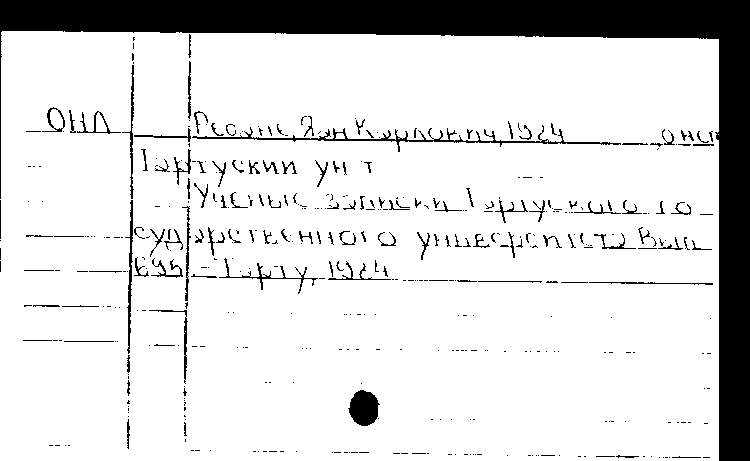 ОНЛ Ребане, Яан Карлович, 1924
Тартуский ун т
Ученые записки Тартуского го
сударственного университета Вып
695 - Тарту, 1924